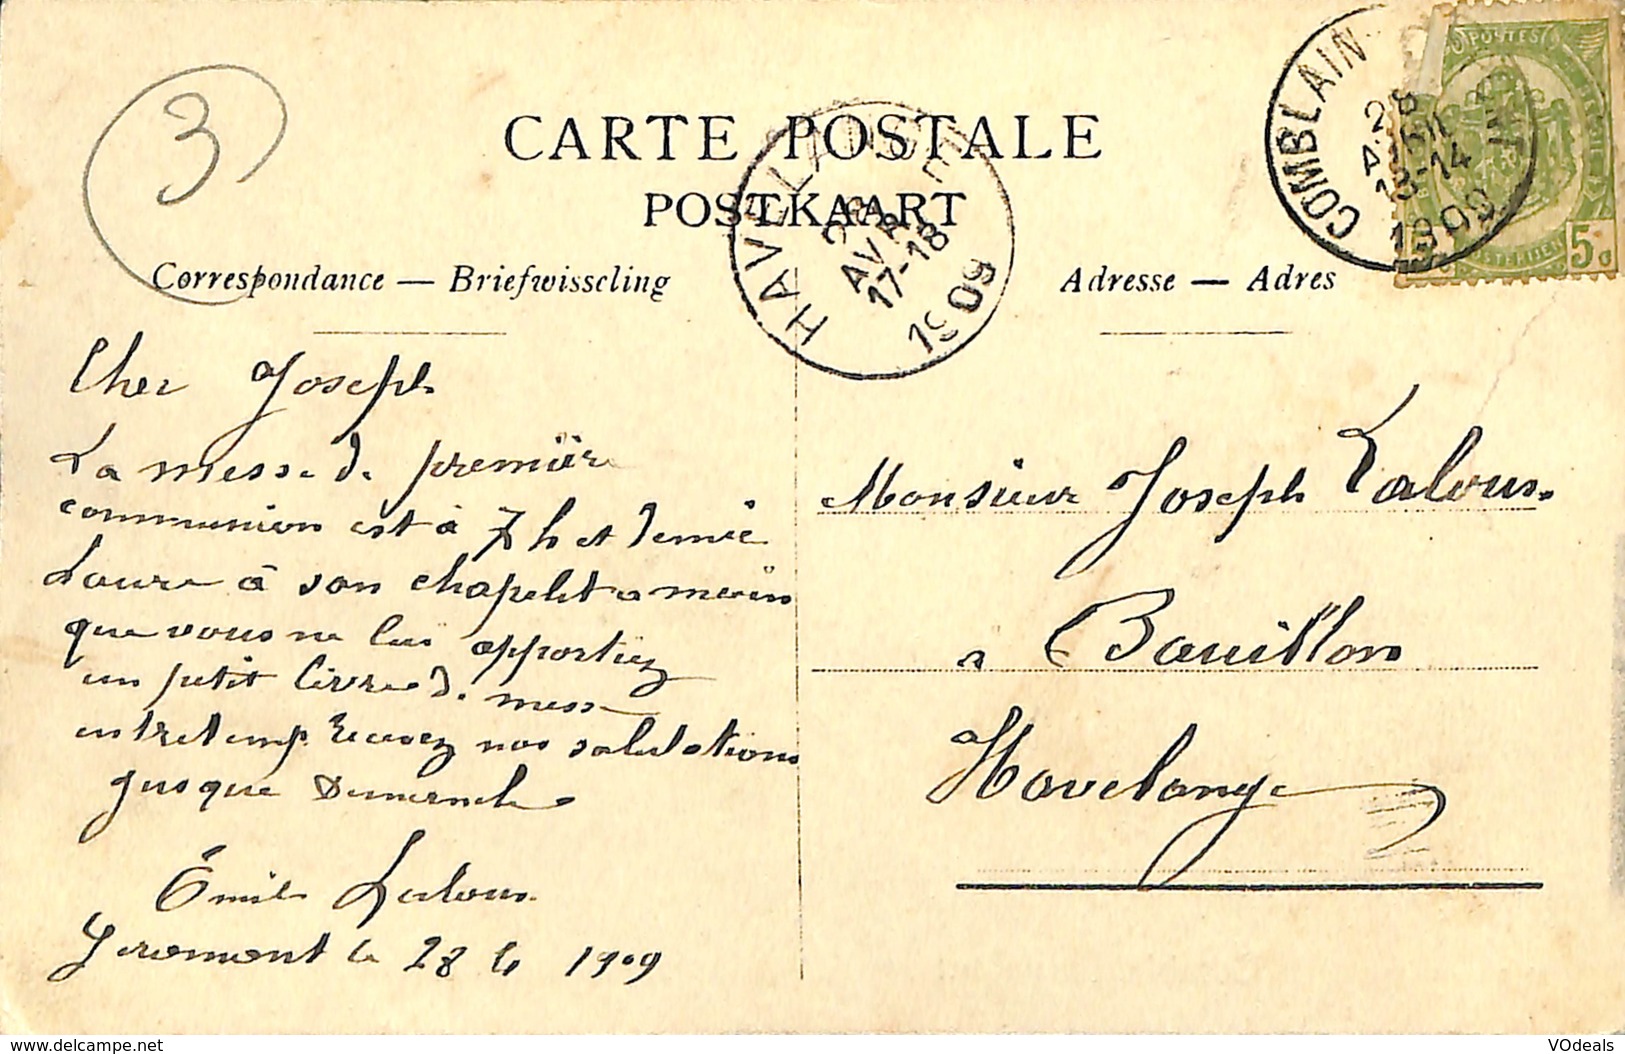 3
CARTE POSTALE
POSTKAART
Correspondance — Briefwisseling
Adresse — Adres
COMBLAIN
28
13-14
1909
POSTES
5c
HAVELANGE
28
AVR
17-18
1909
Cher Joseph
La messe de première
communion est à 7 h et demie
Laure à son chapelet a moins
que vous ne lui apportiez
un petit livre de mess
entretemp Recevez nos salutations
jusque Dimanche
Émile Laloux
Géromont le 28 4 1909
Monsieur Joseph Laloux
a Bouillon
Havelange
www.delcampe.net
VOdeals